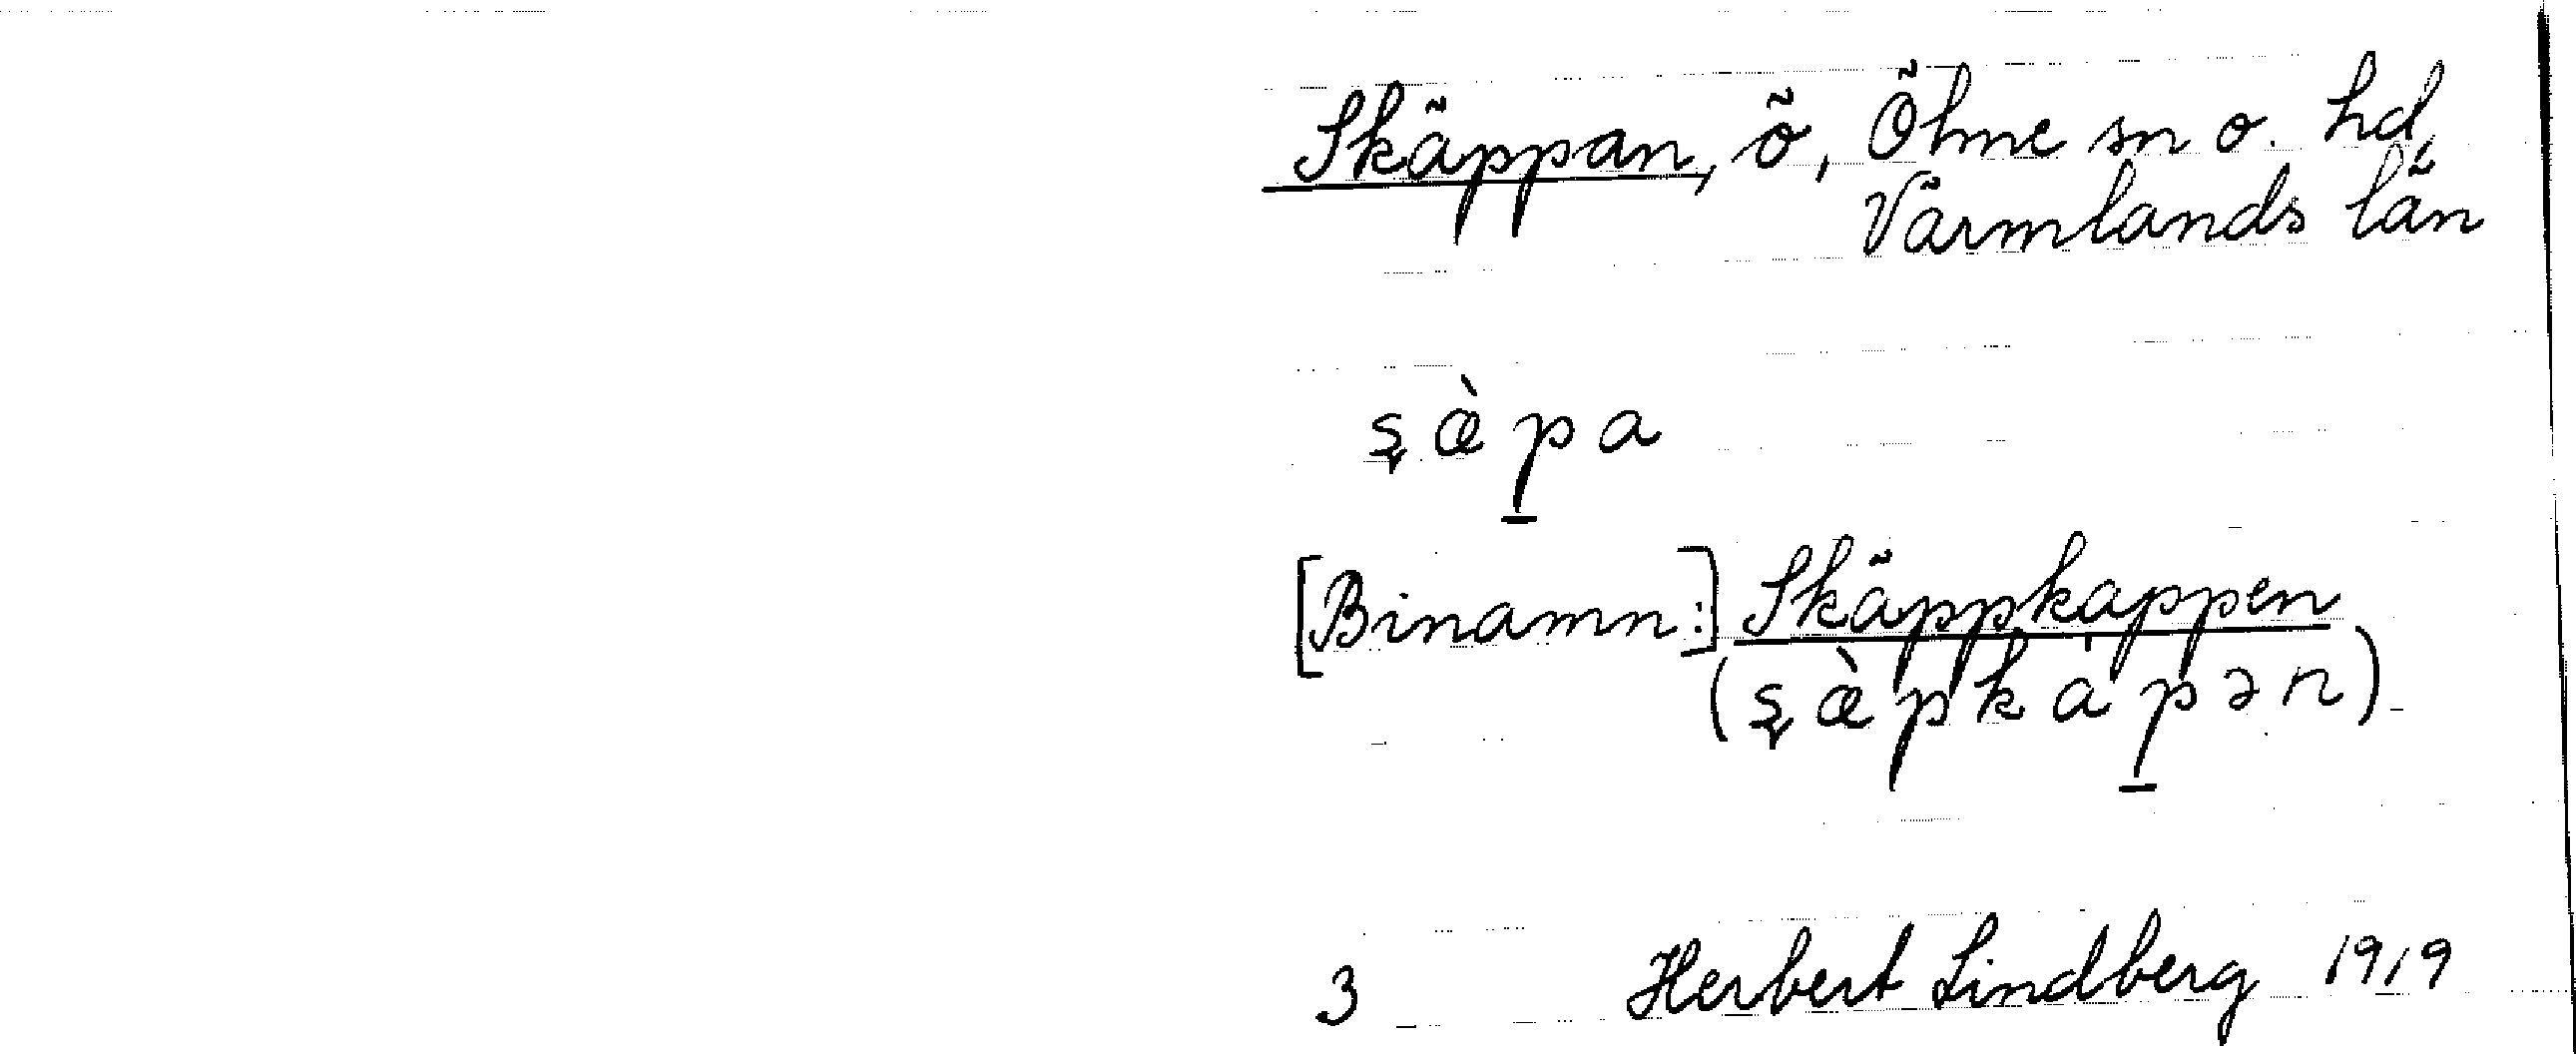 Skäppan, ö, Ölme sn o. hd,
Värmlands län
ʂæ̀p̠a
[Binamn:] Skäppkappen
(ʂæ̀pkáp̠ən)
3 Herbert Lindberg 1919